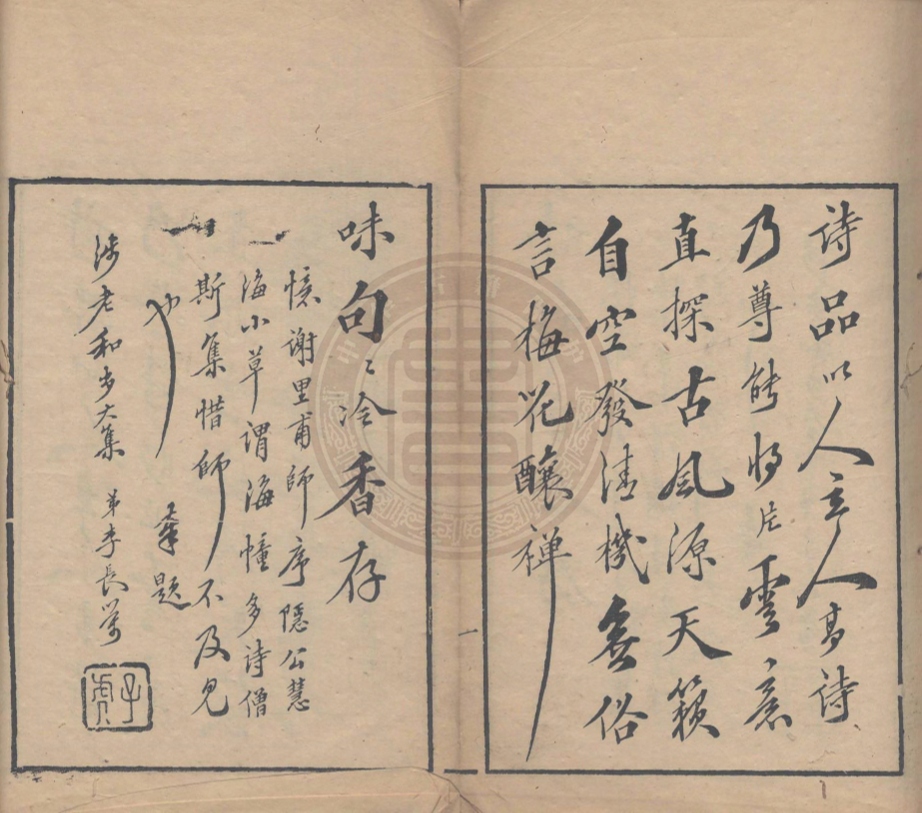 詩品以人立人高詩
乃尊能将片雲意
直探古風源天籟
自空發清機無俗
言梅花釀禅
味句〻冷香存
憶謝里甫師序隱公慧
海小草謂海幢多詩僧
斯集惜師不及見
也 奉題
涉老和尚大集 弟李長榮
子虎